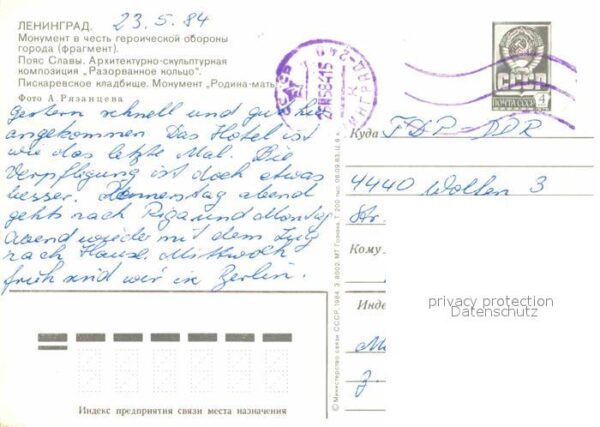 ЛЕНИНГРАД. 23.5.84
Монумент в честь героической обороны
города (фрагмент).
Пояс Славы. Архитектурно-скульптурная
композиция "Разорванное кольцо".
Пискаревское кладбище. Монумент "Родина-мать
Фото А. Рязанцева
gestern schnell und gut hier
angekommen Das Hotel ist
wie das letzte Mal. Die
Verpflegung ist doch etwas
besser. Donnerstag abend
gehts nach Riga und Montag
Abend wieder mit dem Zug
nach Hause. Mittwoch
früh sind wir in Berlin.
СССР
ПОЧТА СССР 4
Куда ГДР DDR
4440 Wolfen 3
Str.
Кому
Инде
privacy protection
Datenschutz
© Министерство связи СССР. 1984.
Индекс предприятия связи места назначения